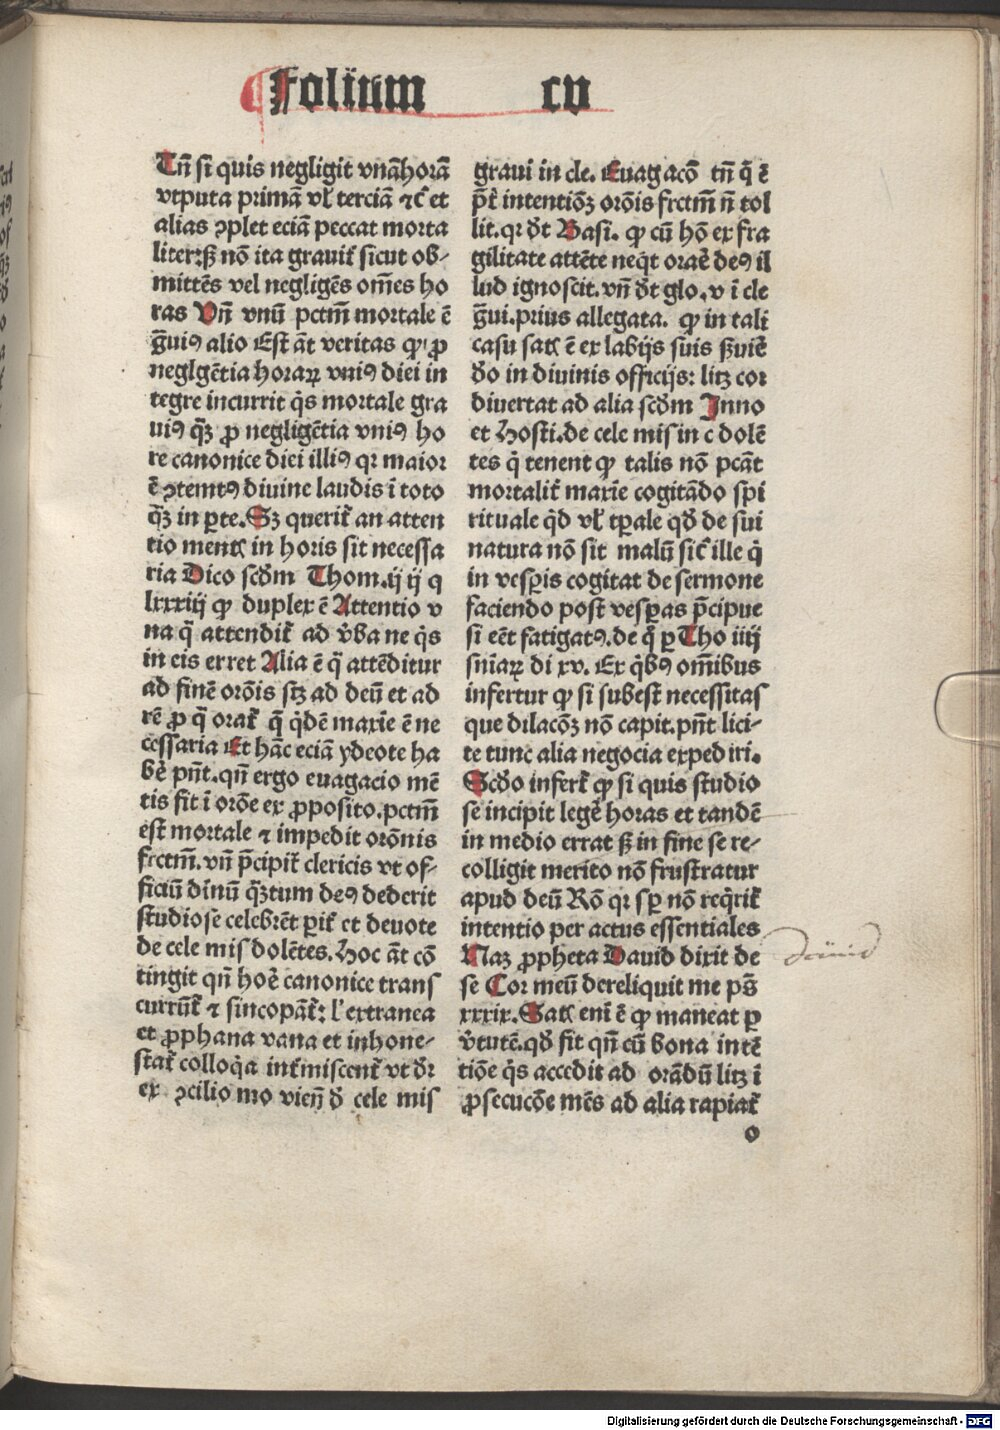 Folium cv
Tn̄ si quis negligit vnā horā
vtputa primā vł terciā ⁊c̄ et
alias ꝯplet eciā peccat morta
liter: sꝫ nō ita grauit᷑ sicut ob-
mittēs vel negligēs om̄es ho
ras Vn̄ vnū pctm̄ mortale ē
g̃uiꝰ alio Est āt veritas ꝙ ꝓ
neglgētia horaꝝ vniꝰ diei in
tegre incurrit q̄s mortale gra
uiꝰ q̄ꝫ ꝓ negligētia vniꝰ ho
re canonice diei illiꝰ qꝛ maior
ē ꝯtemtꝰ diuine laudis ī toto
q̄ꝫ in ꝑte. Sꝫ querit᷑ an atten
tio mentꝭ in horis sit necessa
ria Dico scd̄m Thom. ij ij q
lxxxiij ꝙ duplex ē Attentio v
na q̄ attendit᷑ ad v̄ba ne q̄s
in eis erret Alia ē q̄ attēditur
ad finē orōis sꝫ ad deū et ad
rē ꝓ q̄ orat᷑ q̄ q̄dē maxīe ē ne
cessaria Et hāc eciā ydeote ha
bē͛ pn̄t. qn̄ ergo euagacio mē
tis fit ī orōe ex ꝓposito. pctm̄
est mortale ⁊ impedit orōnis
frctm̄. vn̄ p̄cipit᷑ clericis vt of-
ficiū diīnū q̄ꝫtum deꝰ dederit
studiose celebrēt ꝑit᷑ et deuote
de cele mis dolētes. Hoc āt cō
tingit qn̄ hoē͛ canonice trans
currūt᷑ ⁊ sincopāt᷑: l' extranea
et ꝓphana vana et inhone-
stat᷑ colloq̄a int᷑miscent᷑ vt d̄r
ex ꝯcilio mo vien̄ đ cele mis
graui in cle. Euagacō tn̄ q̄ ē
p̄t᷑ intentiōꝫ orōis frctm̄ n̄ tol
lit. qꝛ d̄t Basi. ꝙ cū hō ex fra
gilitate attēte neq̄t orarē deꝰ il
lud ignoscit. vn̄ d̄t glo. v ī cle
g̃ui. prius allegata. ꝙ in tali
casu satꝭ ē ex labijs suis ẜuiē
do in diuinis officijs: litꝫ cor
diuertat ad alia scd̄m Inno
et Hosti. de cele mis in c dolē
tes q̄ tenent ꝙ talis nō pcāt
mortalit᷑ maxīe cogitādo spi
rituale q̄d vł tꝑale qd̄ de sui
natura nō sit malū sic̄ ille q̄
in vesꝑis cogitat de sermone
faciendo post vesꝑas p̄cipue
si eēt fatigatꝰ. de q̄ ꝑ Tho iiij
sn̄iaꝝ di xv. Ex q̄bꝰ om̄ibus
infertur ꝙ si subest necessitas
que dilacōꝫ nō capit. pn̄t lici-
te tunc alia negocia expediri.
Scd̄o infert᷑ ꝙ si quis studio
se incipit legē͛ horas et tandē
in medio errat sꝫ in fine se re-
colligit merito nō frustratur
apud deū Rō qꝛ sꝑ nō req̄rit᷑
intentio per actus essentiales
Naꝫ ꝓpheta Dauid dixit de
se Cor meū dereliquit me pṡ
xxxix. Satꝭ eni ē ꝙ maneat ꝑ
v̄tutē. qd̄ fit qn̄ cū bona intē
tiōe q̄s accedit ad orādū litꝫ ī
ꝓsecucōe mēs ad alia rapiat᷑
o
Digitalisierung gefördert durch die Deutsche Forschungsgemeinschaft - DFG